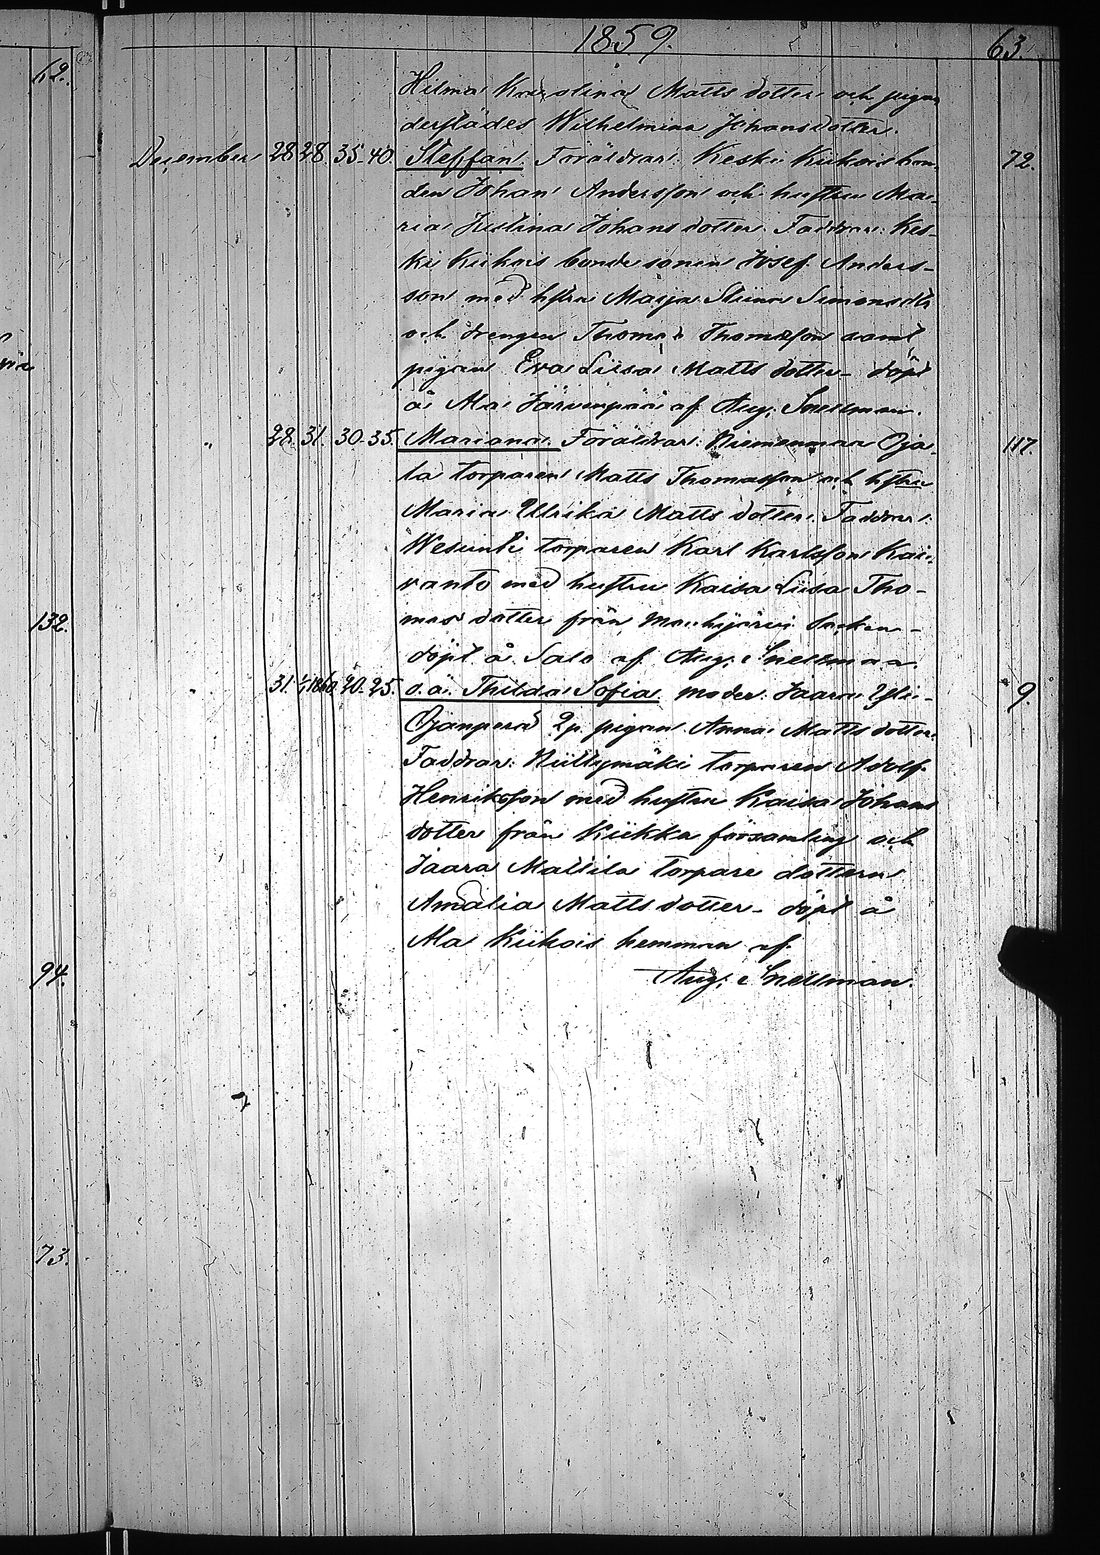 1859.
63.
62.
Hilma Karolina Matts dotter och pigan
derstädes Wilhelmina Johansdotter.
December 28 28. 35-40. Steffan. Föräldrar: Keski Kiikois bon 72.
den Johan Andersson och hustru Ma-
ria Justina Johans dotter. Faddrar: Kes-
ki Kiikois bonde sonen Josef Anders-
son med hstru Maja Stiina Simonsdtr
och drengen Thomas Thomasson samt
pigan Eva Liisa Matts dotter - döpt
å Ala Järvenpää af Aug. Snellman.
" 28. 31. 30-35. Mariana. Föräldrar: Niemenmaa Oja- 117.
la torparen Matts Thomasson och hstru
Maria Ulrika Matts dotter. Faddrar:
Wesunti torparen Karl Karlsson Kai-
vanto med hustru Kaisa Liisa Tho-
mas dotter från Mouhijärvi Socken -
132.
döpt å Salo af Aug. Snellman.
31. 1/1 1860. 20-25. o.ä. Thilda Sofia, moder: Jaara Yli- 9.
Ojanperä 2p. pigan Anna Matts dotter.
Faddrar: Niittymäki torparen Adolf
Henriksson med hustru Kaisa Johans
dotter från Kiikka församling och
Jaara Mattila torpare dottern
Amalia Matts dotter - döpt å
Ala Kiikois hemman af
94.
Aug. Snellman.
73.